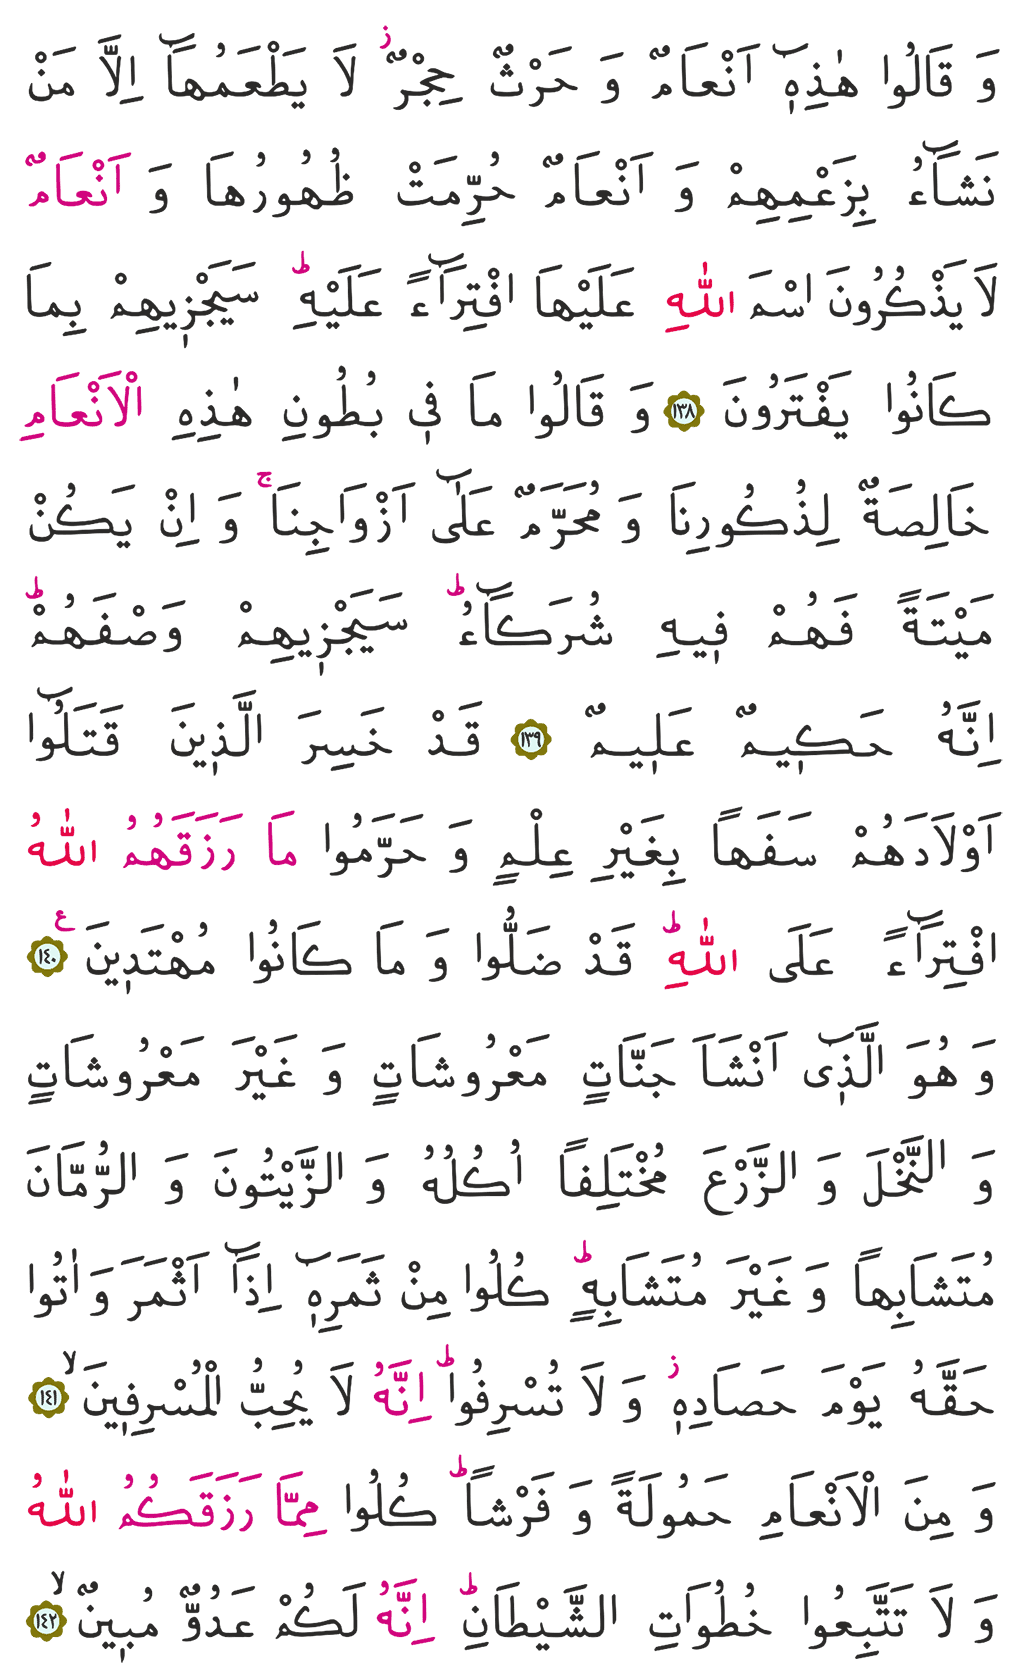 وَ قَالُوا هٰذِهٖٓ اَنْعَامٌ وَ حَرْثٌ حِجْرٌ ز لَا يَطْعَمُهَٓا اِلَّا مَنْ
نَشَٓاءُ بِزَعْمِهِمْ وَ اَنْعَامٌ حُرِّمَتْ ظُهُورُهَا وَ اَنْعَامٌ
لَا يَذْكُرُونَ اسْمَ اللّٰهِ عَلَيْهَا افْتِرَٓاءً عَلَيْهِ ط سَيَجْزٖيهِمْ بِمَا
كَانُوا يَفْتَرُونَ ١٣٨ وَ قَالُوا مَا فٖى بُطُونِ هٰذِهِ الْاَنْعَامِ
خَالِصَةٌ لِذُكُورِنَا وَ مُحَرَّمٌ عَلٰٓى اَزْوَاجِنَا ج وَ اِنْ يَكُنْ
مَيْتَةً فَهُمْ فٖيهِ شُرَكَٓاءُ ط سَيَجْزٖيهِمْ وَصْفَهُمْ ط
اِنَّهُ حَكٖيمٌ عَلٖيمٌ ١٣٩ قَدْ خَسِرَ الَّذٖينَ قَتَلُٓوا
اَوْلَادَهُمْ سَفَهًا بِغَيْرِ عِلْمٍ وَ حَرَّمُوا مَا رَزَقَهُمُ اللّٰهُ
افْتِرَٓاءً عَلَى اللّٰهِ ط قَدْ ضَلُّوا وَ مَا كَانُوا مُهْتَدٖينَ ع ١٤٠
وَ هُوَ الَّذٖٓى اَنْشَاَ جَنَّاتٍ مَعْرُوشَاتٍ وَ غَيْرَ مَعْرُوشَاتٍ
وَ النَّخْلَ وَ الزَّرْعَ مُخْتَلِفًا اُكُلُهُ وَ الزَّيْتُونَ وَ الرُّمَّانَ
مُتَشَابِهًا وَ غَيْرَ مُتَشَابِهٍ ط كُلُوا مِنْ ثَمَرِهٖٓ اِذَٓا اَثْمَرَ وَ اٰتُوا
حَقَّهُ يَوْمَ حَصَادِهٖ ز وَ لَا تُسْرِفُوا ط اِنَّهُ لَا يُحِبُّ الْمُسْرِفٖينَ لا ١٤١
وَ مِنَ الْاَنْعَامِ حَمُولَةً وَ فَرْشًا ط كُلُوا مِمَّا رَزَقَكُمُ اللّٰهُ
وَ لَا تَتَّبِعُوا خُطُوَاتِ الشَّيْطَانِ ط اِنَّهُ لَكُمْ عَدُوٌّ مُبٖينٌ لا ١٤٢